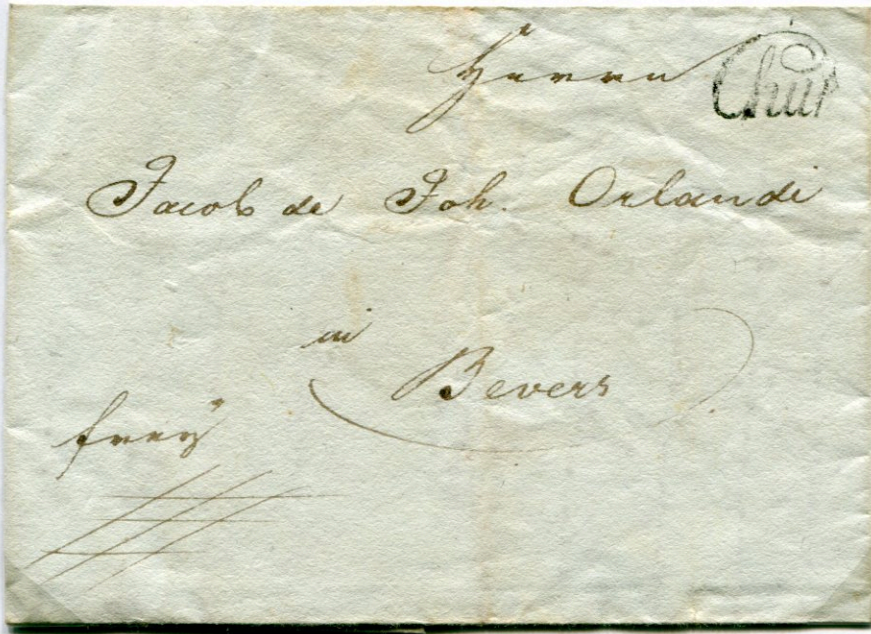 Herrn
Chur
Jacob de Joh. Orlandi
in
Bevers
frey